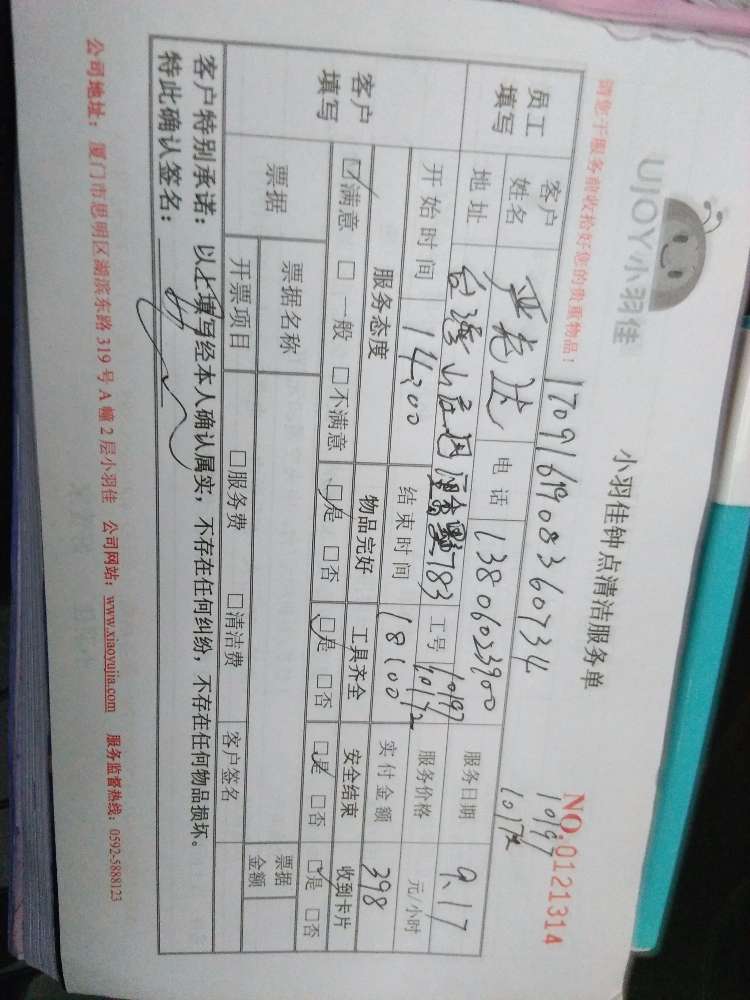 UJOY小羽佳
小羽佳钟点清洁服务单
NO:0121314
请您于服务前收拾好您的贵重物品!
1709161908360734
10197
10172
员工填写
客户姓名
电话 13806023900
服务日期 9.17
地址
783
工号 10197
10172
服务价格 元/小时
开始时间 14:00
结束时间 18:00
实付金额 398
客户填写
服务态度 物品完好 工具齐全 安全结束 收到卡片
☑满意 □一般 □不满意 ☑是 □否 ☑是 □否 ☑是 □否 ☑是 □否
票据
票据名称
票据金额
开票项目 □服务费 □清洁费 客户签名
客户特别承诺:以上填写经本人确认属实,不存在任何纠纷,不存在任何物品损坏。
特此确认签名:
公司地址:厦门市思明区湖滨东路319号A幢2层小羽佳 公司网站:www.xiaoyujia.com 服务监督热线:0592-5888123